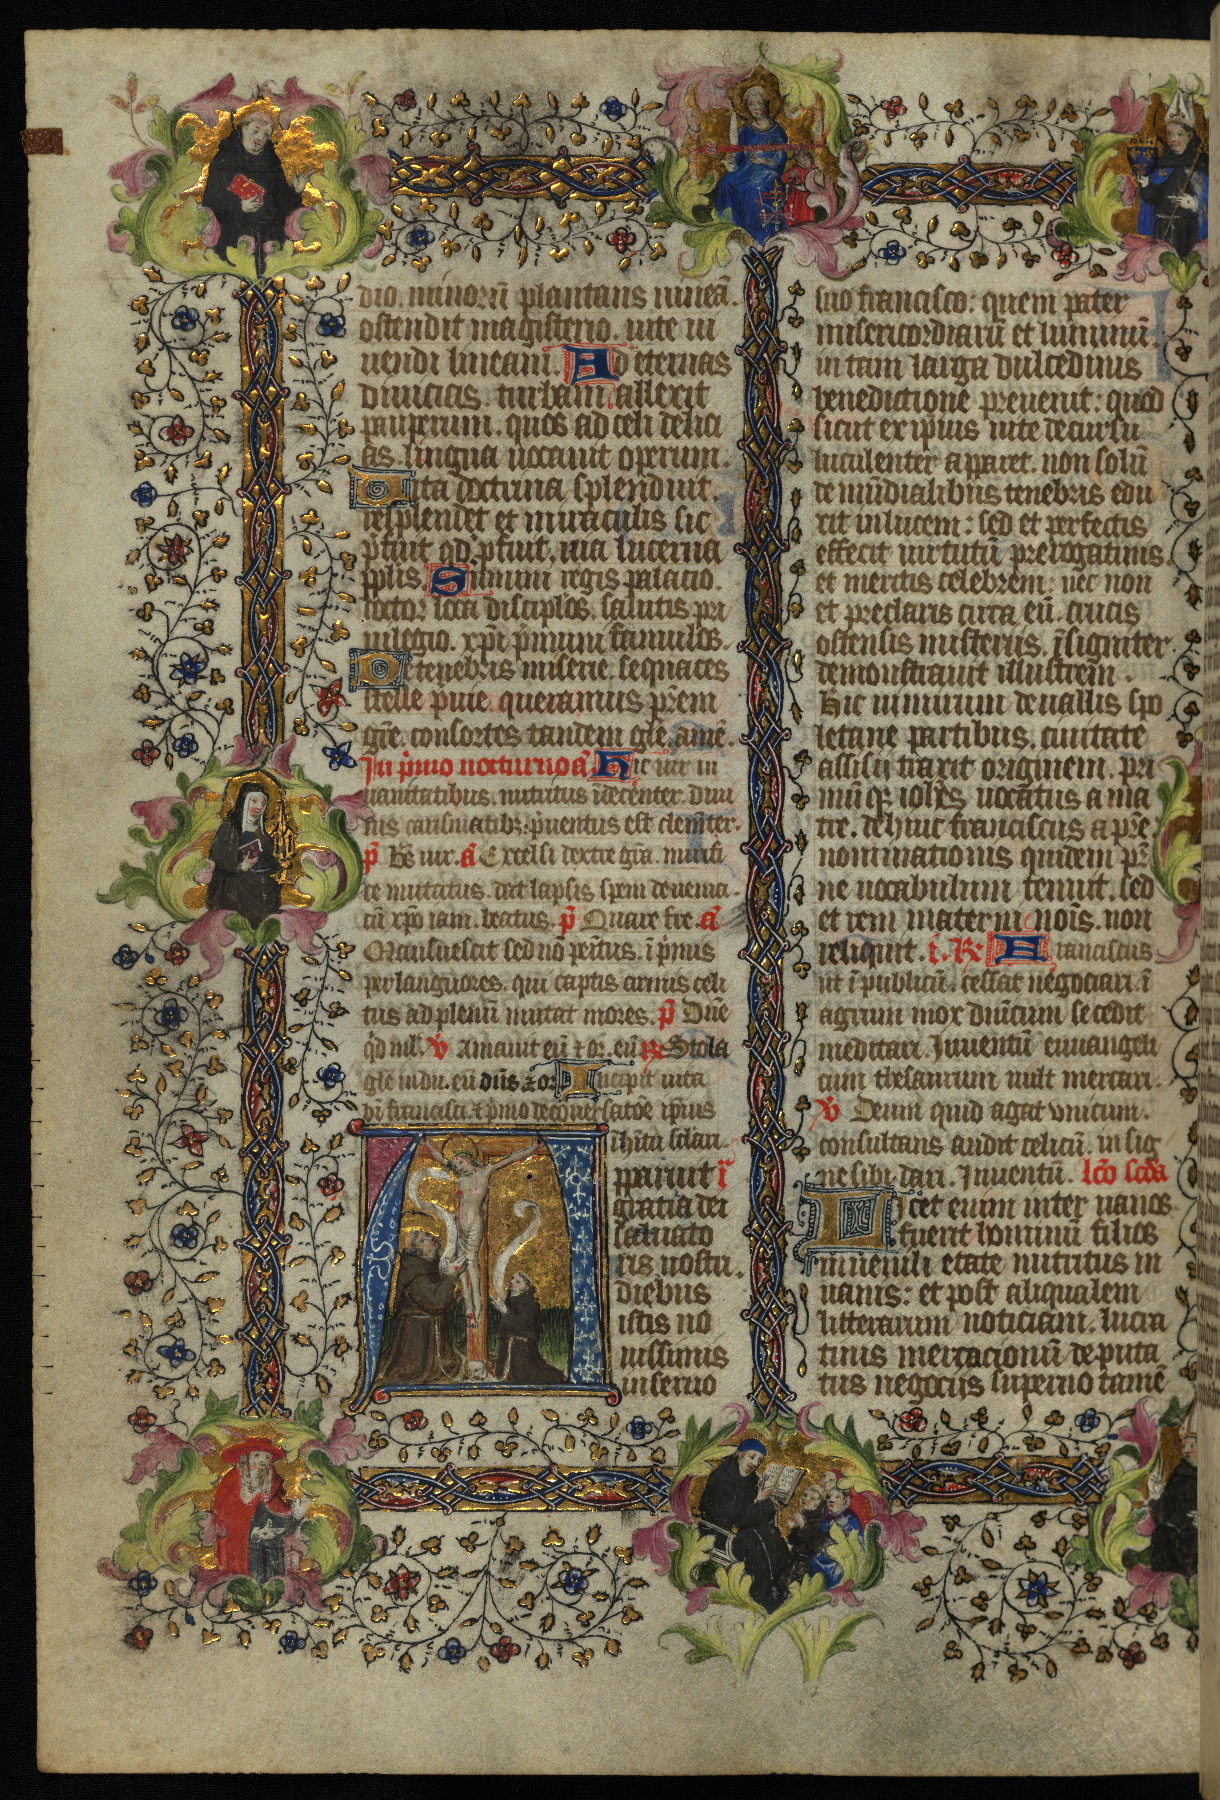 dio. minorū plantans vineā.
ostendit magisterio. vite vi
vendi lineam. Ad eternas
divicias. turbam allexit
pauperum. quos ad celi delici
as. lingua vocavit operum.
Vita doctrina splenduit.
resplendet et miraculis sic
p̄fuit qd̓ p̄fuit. via lucerna
pplis. Summi regis palacio.
doctor loca disciplos. salutis pri
vilegio. xpī p̄mium famulos.
De tenebris miserie. sequaces
nelle p̄vie. queramus p̄rem
gr̄e. consortes tandem gl̄e. amē.
In p̄mo nocturno ā Hic vir in
vanitatibus. nutritus īdecenter. divi
nis carismatibꝫ. p̄ventus est clem̄ter.
p̄ Bt̄s vir. ā Excelsi dextre gr̄a. mirifi
ce mutatus. dat lapsis spem de venia.
cū xp̄o iam. beatus. p̄ Quare fre. ā
Mansuescit sed nō penitus. ī p̄mis
per langwores. qui captis armis celi
tus ad plenū mutat mores. p̄ Dn̄e
qd̓ ml̓. v̄ Amavit eū ⁊ or. eū ℞ Stola
gl̄e indu. eū dn̄s ⁊ or. Incipit vita
bt̄i francisci. ⁊ p̄mo de conversatōe ipīus
ī hītu sclari.
Apparuit ī
gratia dei
salvato
ris nostri.
diebus
istis no
vissimis
in servo
suo francisco: quem pater
misericordiarū et luminū
in tam larga dulcedinis
benedictione prevenit: quod
sicut ex ipīus vite decursu
luculenter apparet. non solū
de mūdialibus tenebris edu
xit in lucem: sed et perfectis
effecit virtutū prerogativis.
et meritis celebrem: nec non
et preclaris circa eū. crucis
ostensis misteriis. īsigniter
demonstravit illustrem.
Hic nimirum de vallis spo
letane partibus. civitate
assisii traxit originem. pri
mūqꝫ ioh̄es vocatus a ma
tre. dehinc franciscus a p̄re
nominationis quidem p̄r
ne vocabulum tenuit. sed
et rem materni nōis. non
reliquit. i. ℞ Franciscus
ut ī publicū. cessat negociari. ī
agrum mox dn̄icum secedit
meditari. Inventū euuangeli
cum thesaurum vult mercari.
v̄ Deum quid agat vnicum.
consultans audit celicū. insig
ne sibi dari. Inventū. lc̄o scd̄a
Licet enim inter vanos
fuerit hominū filios
in iuvenili etate nutritus in
vanis: et post aliqualem
litterarum noticiam. lucra
tivis mercacionū deputa
tus negociis superno tamē